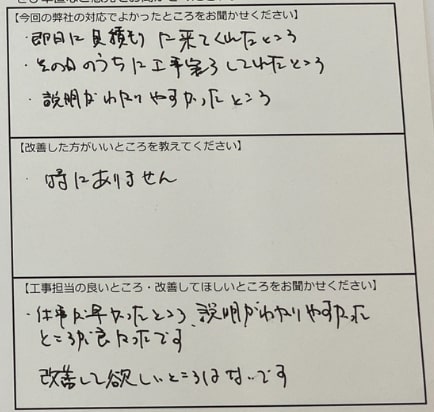 【今回の弊社の対応でよかったところをお聞かせください】
・即日に見積もりに来てくれたところ
・その日のうちに工事完了してくれたところ
・説明がわかりやすかったところ
【改善した方がいいところを教えてください】
・特にありません
【工事担当の良いところ・改善してほしいところをお聞かせください】
・仕事が早かったところ、説明がわかりやすかった
ところが良かったです
改善して欲しいところはないです